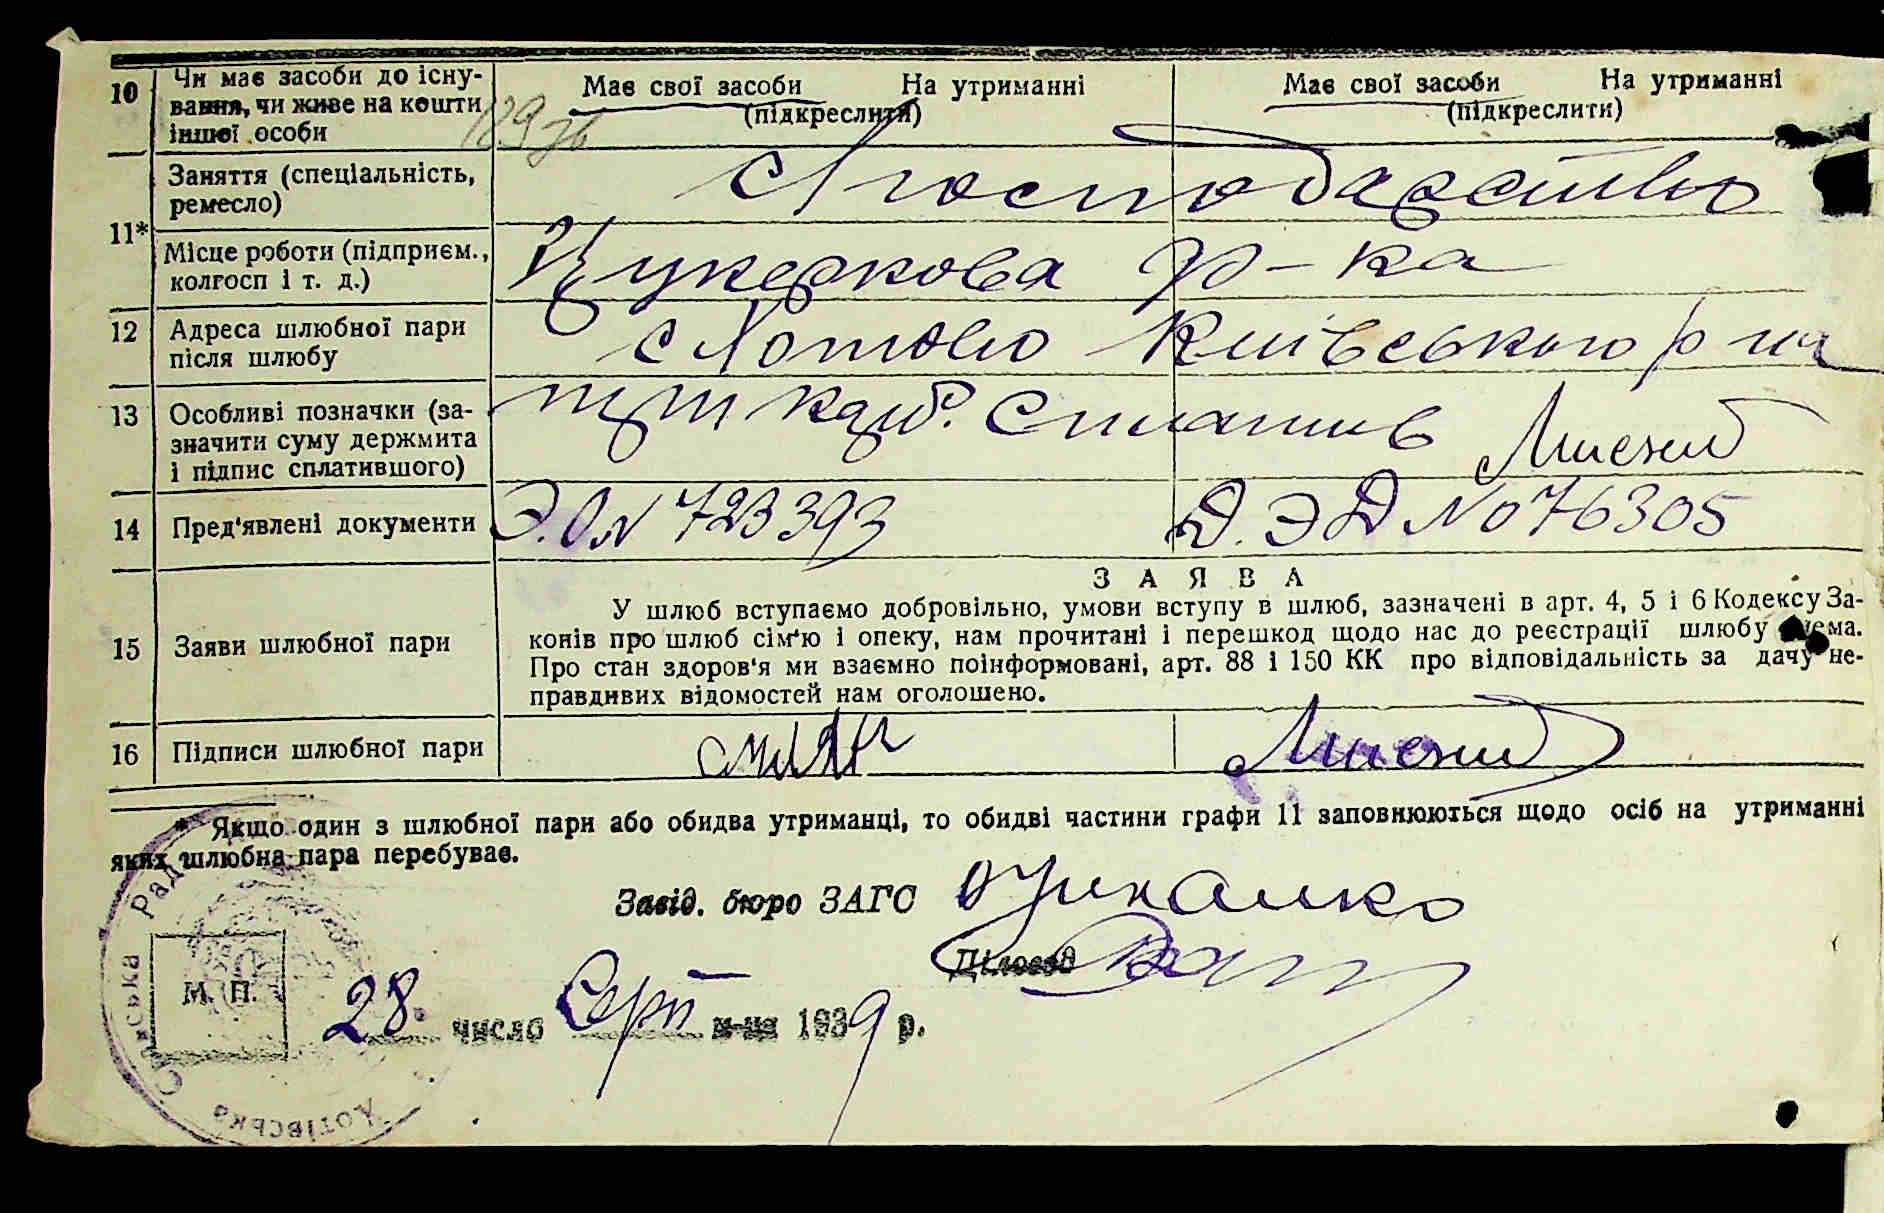 10
Чи має засоби до існу-
вання, чи живе на кошти
іншої особи
Має свої засоби На утриманні
(підкреслити)
Має свої засоби На утриманні
(підкреслити)
11*
Заняття (спеціальність,
ремесло)
С/господарство
Місце роботи (підприєм.,
колгосп і т. д.)
Цукеркова ф-ка
12
Адреса шлюбної пари
після шлюбу
с Хотово Київського р-на
13
Особливі позначки (за-
значити суму держмита
і підпис сплатившого)
три карб. Сплатив
14
Пред'явлені документи
№ 723393
№ 076305
15
Заяви шлюбної пари
ЗАЯВА
У шлюб вступаємо добровільно, умови вступу в шлюб, зазначені в арт. 4, 5 і 6 Кодексу За-
конів про шлюб сім'ю і опеку, нам прочитані і перешкод щодо нас до реєстрації шлюбу нема.
Про стан здоров'я ми взаємно поінформовані, арт. 88 і 150 КК про відповідальність за дачу не-
правдивих відомостей нам оголошено.
16
Підписи шлюбної пари
* Якщо один з шлюбної пари або обидва утриманці, то обидві частини графи 11 заповнюються щодо осіб на утриманні
яких шлюбна пара перебуває.
Завід. бюро ЗАГС
Діловод
М. П.
28 число Серп м-ця 1939 р.
Хотівська Сільська Рада